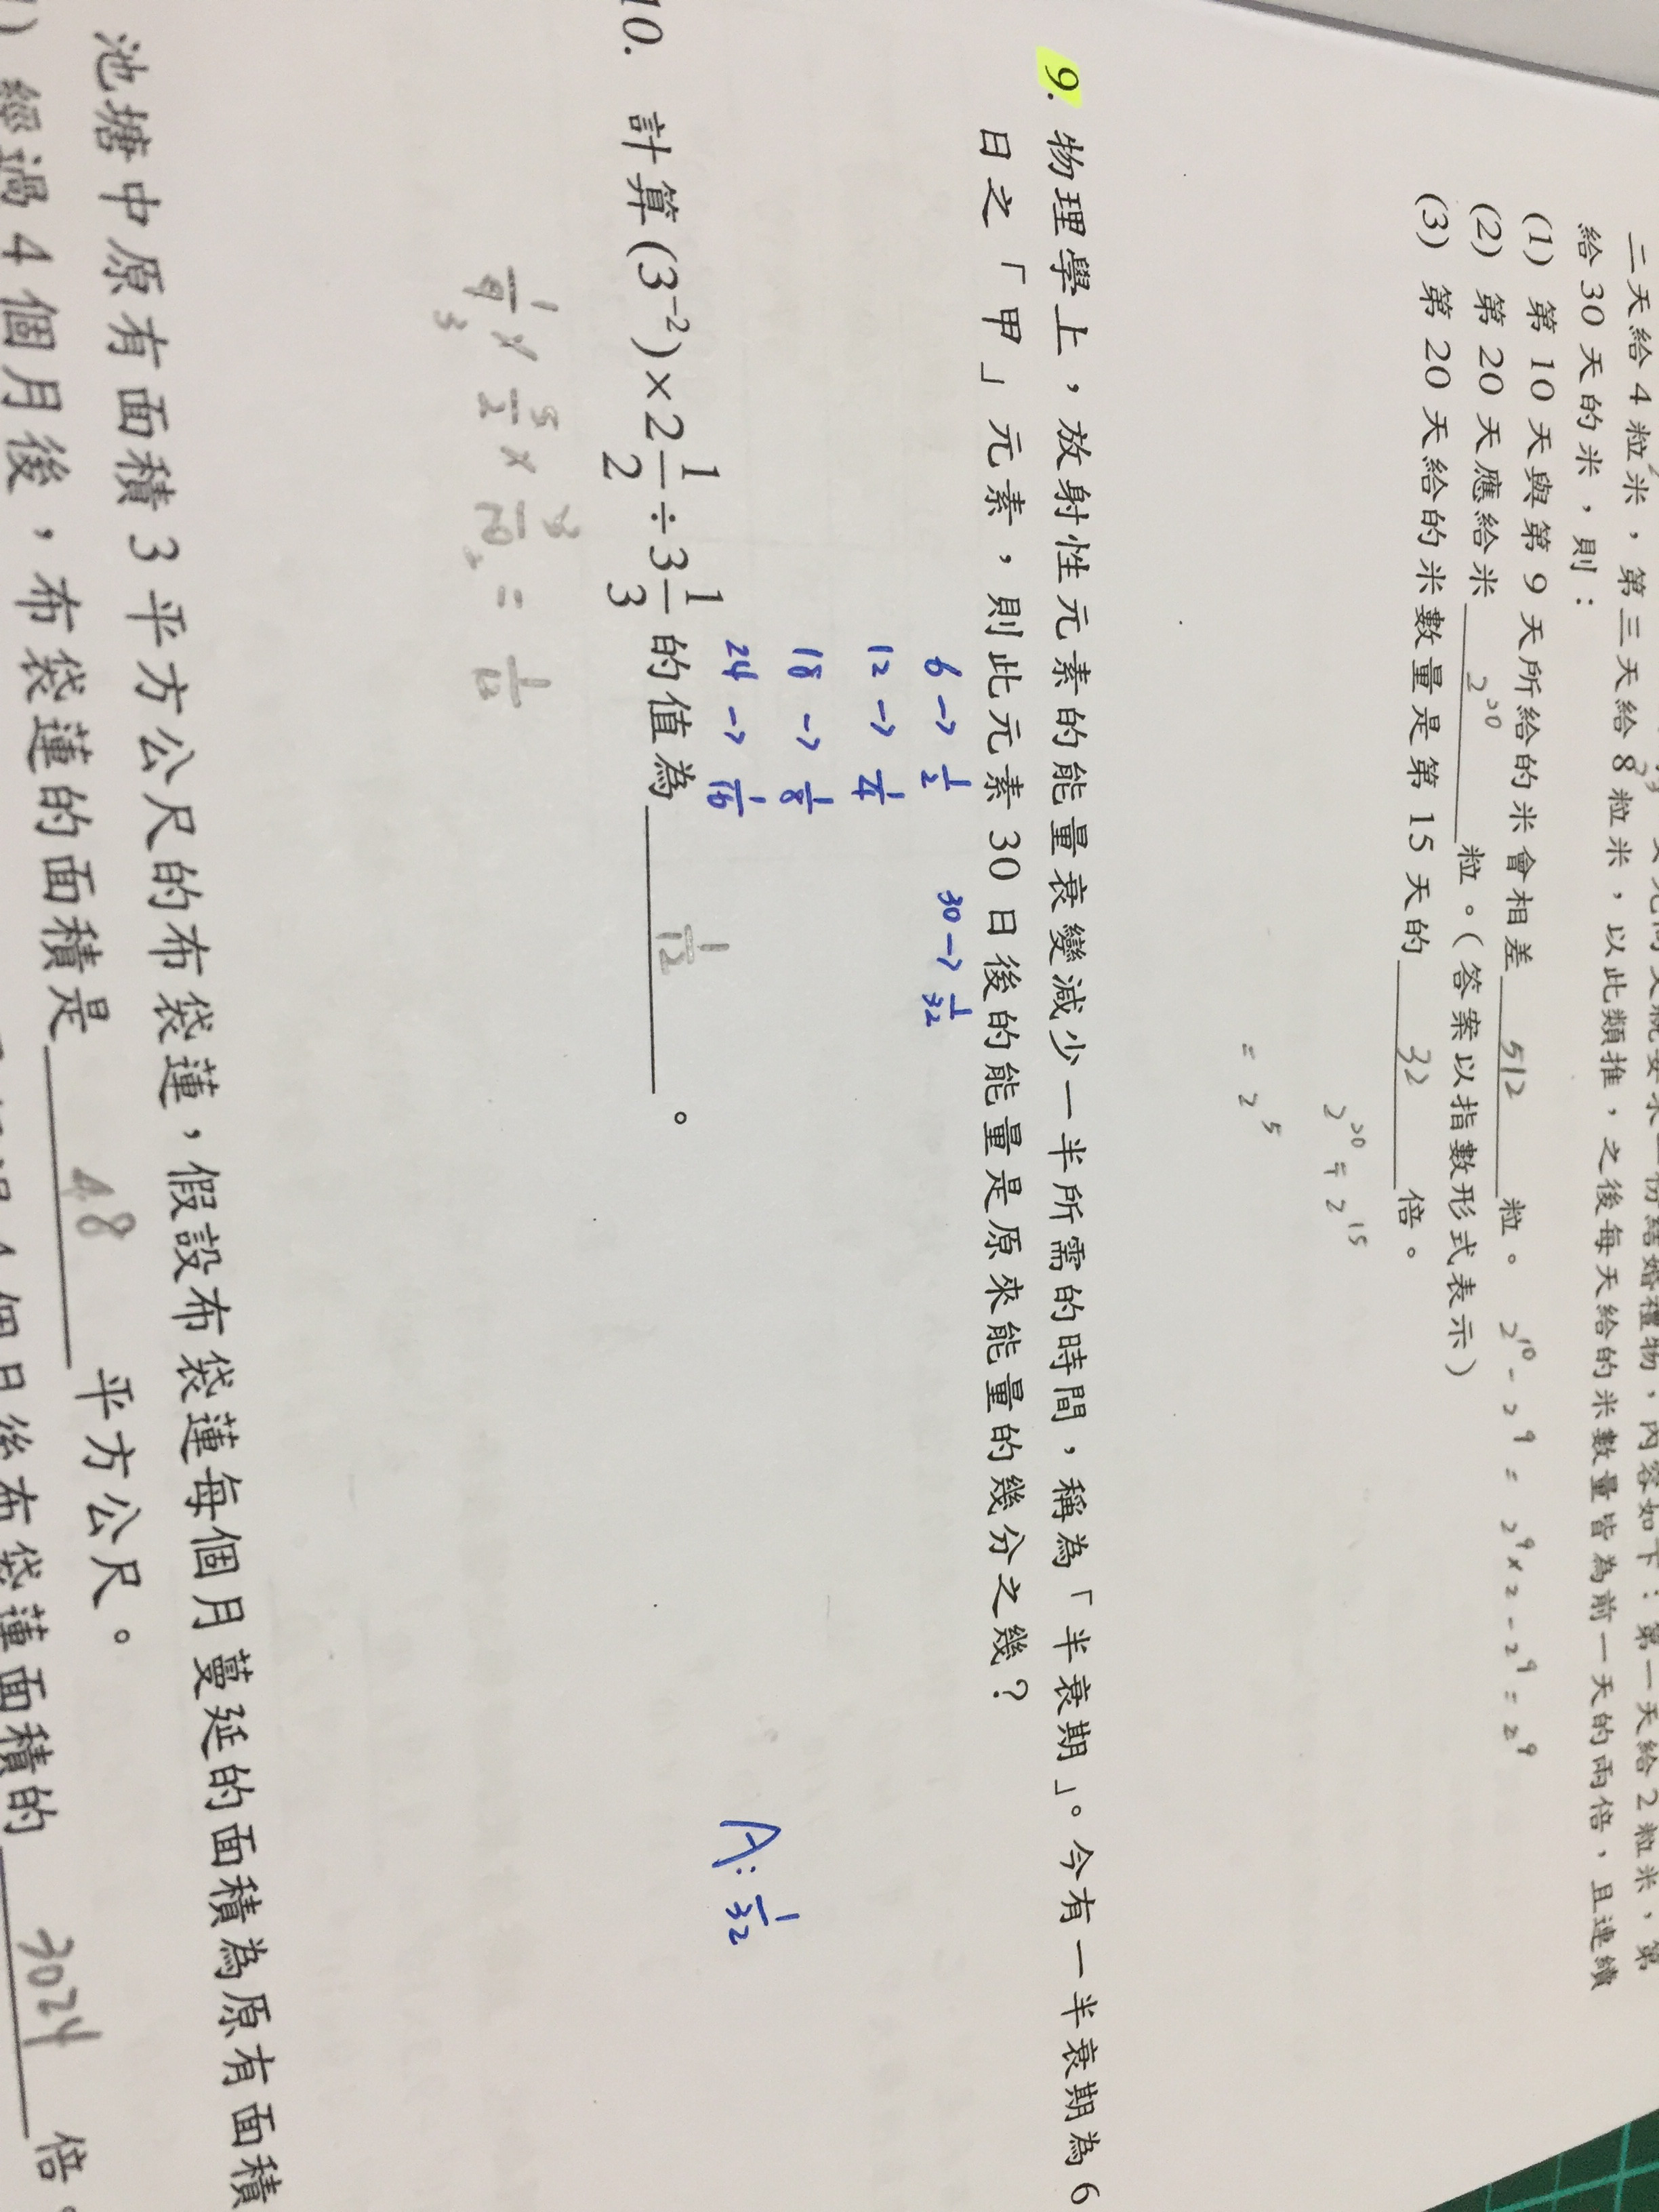 二天給 4 粒米，第三天給 8 粒米，以此類推，之後每天給的米數量皆為前一天的兩倍，且連續
給 30 天的米，則：
(1) 第 10 天與第 9 天所給的米會相差 512 粒。 2¹⁰ - 2⁹ = 2⁹ × 2 - 2⁹ = 2⁹
(2) 第 20 天應給米 2²⁰ 粒。（答案以指數形式表示）
(3) 第 20 天給的米數量是第 15 天的 32 倍。
2²⁰ ÷ 2¹⁵
= 2⁵
9. 物理學上，放射性元素的能量衰變減少一半所需的時間，稱為「半衰期」。今有一半衰期為 6
日之「甲」元素，則此元素 30 日後的能量是原來能量的幾分之幾？
6 → 1/2 30 → 1/32
12 → 1/4
18 → 1/8
24 → 1/16
A: 1/32
10. 計算 (3⁻²) × 2 1/2 ÷ 3 1/3 的值為 1/12 。
1/9 × 5/2 × 3/10 = 1/12
3 2
池塘中原有面積 3 平方公尺的布袋蓮，假設布袋蓮每個月蔓延的面積為原有面積
1) 經過 4 個月後，布袋蓮的面積是 48 平方公尺。
4 個月後布袋蓮面積的 3024 倍。